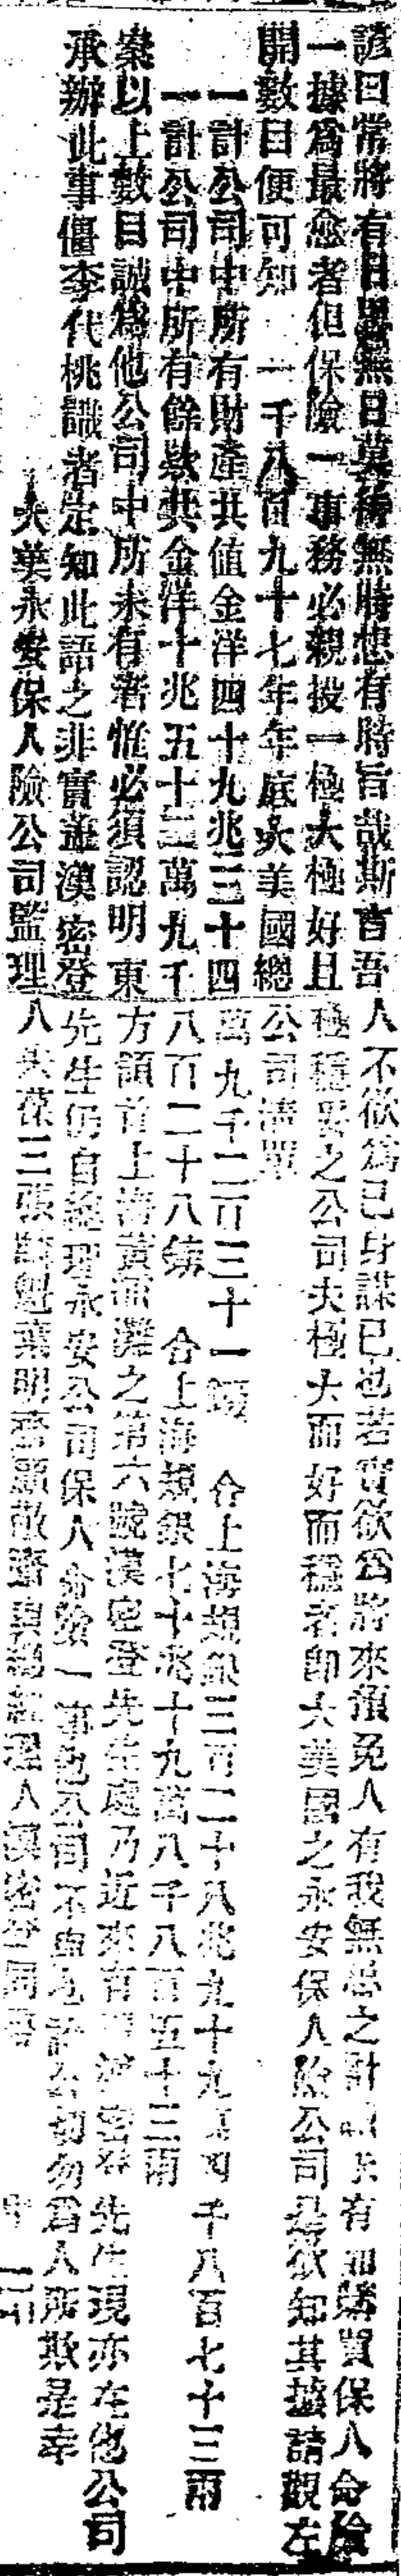 諺曰常將有日思無日莫待無時想有時旨哉斯言吾人不欲爲己身謀已也若實欲爲將來預免人有我無思之計 有如購買保人命險
一據爲最愈者但保險一事務必親投一極大極好且極穩妥之公司夫極大而好而穩者即大美國之永安保人險公司是欲知其據請觀左
開數目便可知 一千八百九十七年年底大美國總公司清單
一計公司中所有財產共值金洋四十九兆三十四萬九千二百三十一鎊 合上海規銀三百二十八兆九十九萬四千八百七十三兩
一計公司中所有餘款共金洋十兆五十三萬九千八百二十八鎊 合上海規銀七十兆十九萬八千八百五十三兩
案以上數目誠爲他公司中所未有者惟必須認明東方領首上海黃浦灘之第六號漢密登先生處乃近來有 漢密登先生現亦在他公司
承辦此事僵李代桃識者定知此語之非實蓋漢密登先生仍自經理永安公司保人命險一事也 公司不 切勿爲人所欺是幸
大美永安保人險公司監理人 三張 葉明齋顧敬齋 總經理人漢密登同啓